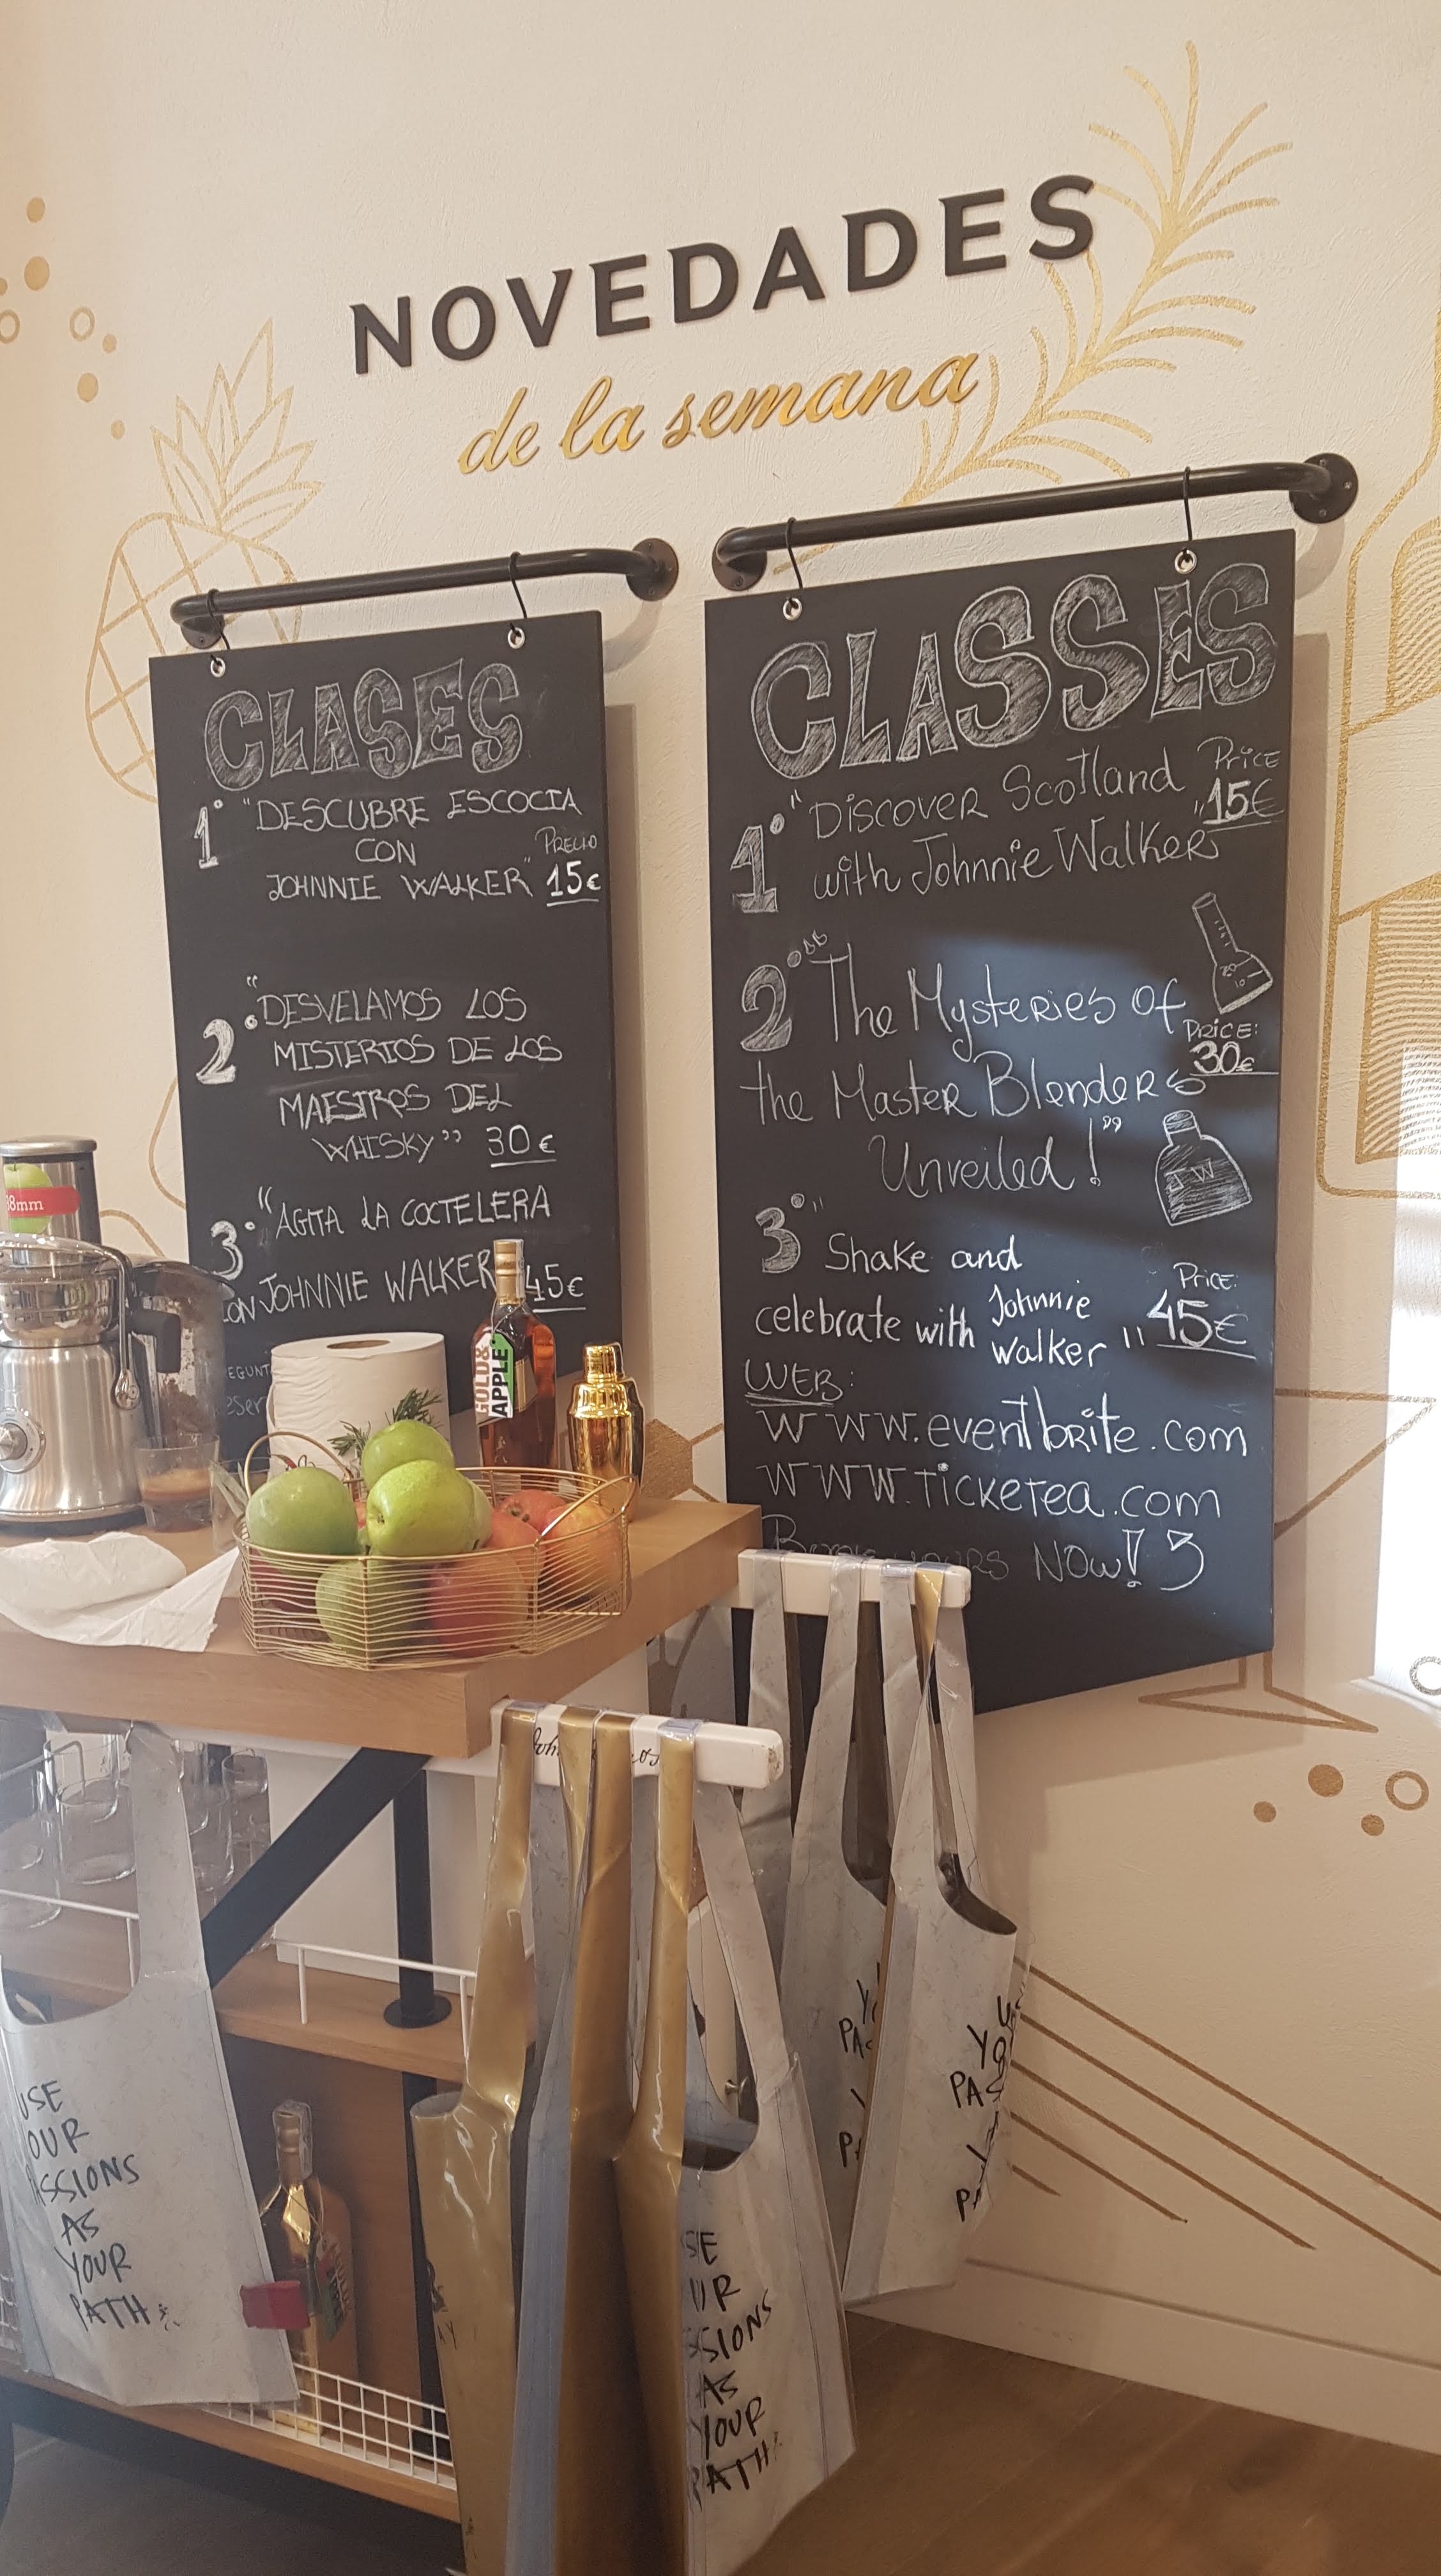 NOVEDADES
de la semana
CLASES
1° "DESCUBRE ESCOCIA
CON
JOHNNIE WALKER"
PRECIO
15€
2° "DESVELAMOS LOS
MISTERIOS DE LOS
MAESTROS DEL
WHISKY" 30€
3° "AGITA LA COCTELERA
CON JOHNNIE WALKER 45€
CLASSES
1° "Discover Scotland
with Johnnie Walker"
Price
15€
2° "The Mysteries of
the Master Blenders
Unveiled!"
PRICE:
30€
JW
3° "Shake and
celebrate with Johnnie
Walker"
Price:
45€
WEB:
www.eventbrite.com
www.ticketea.com
NOW!
38mm
GOLD&
APPLE
USE
OUR
PASSIONS
AS
YOUR
PATH
YOUR
PATH
AS